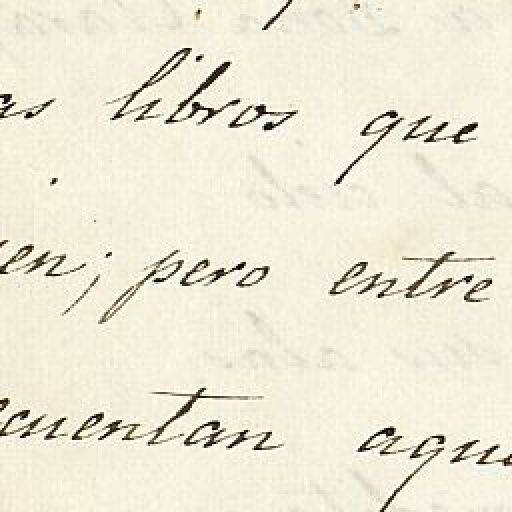 as libros que
en; pero entre
cuentan aqu